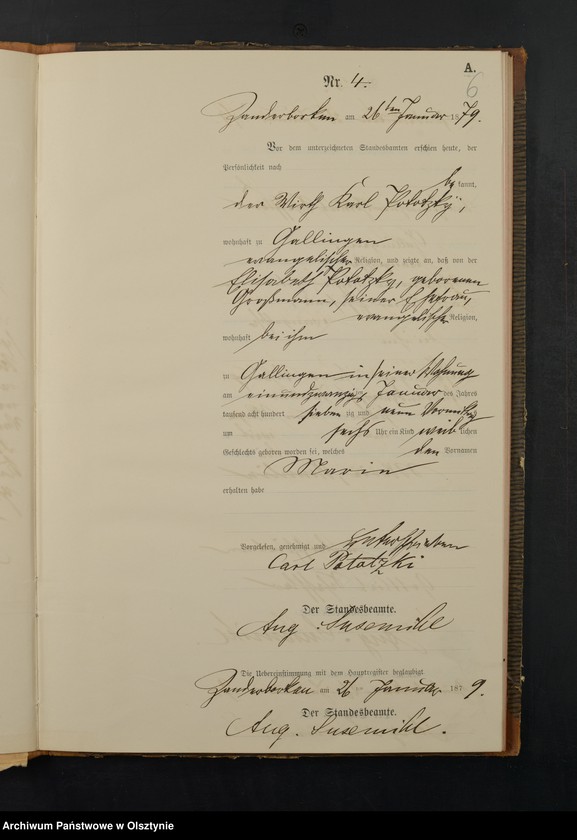 A.
6
Nr. 4.
Zanderborken am 26ten Januar 1879.
Vor dem unterzeichneten Standesbeamten erschien heute, der
Persönlichkeit nach
bekannt,
der Wirth Karl Pototzky,
wohnhaft zu Gallingen
evangelischer Religion, und zeigte an, daß von der
Elisabeth Pototzky, geborenen
Großmann, seiner Ehefrau,
evangelischer Religion,
wohnhaft bei ihm
zu Gallingen in seiner Wohnung
am einundzwanzigs Januar des Jahres
tausend acht hundert siebenzig und neun Vormittags
um sechs Uhr ein Kind weiblichen
Geschlechts geboren worden sei, welches den Vornamen
Marie
erhalten habe
Vorgelesen, genehmigt und unterschrieben
Carl Pototzki
Der Standesbeamte.
Aug. Susemihl
Die Uebereinstimmung mit dem Hauptregister beglaubigt
Zanderborken am 26 Januar 1879.
Der Standesbeamte.
Aug. Susemihl.
Archiwum Państwowe w Olsztynie